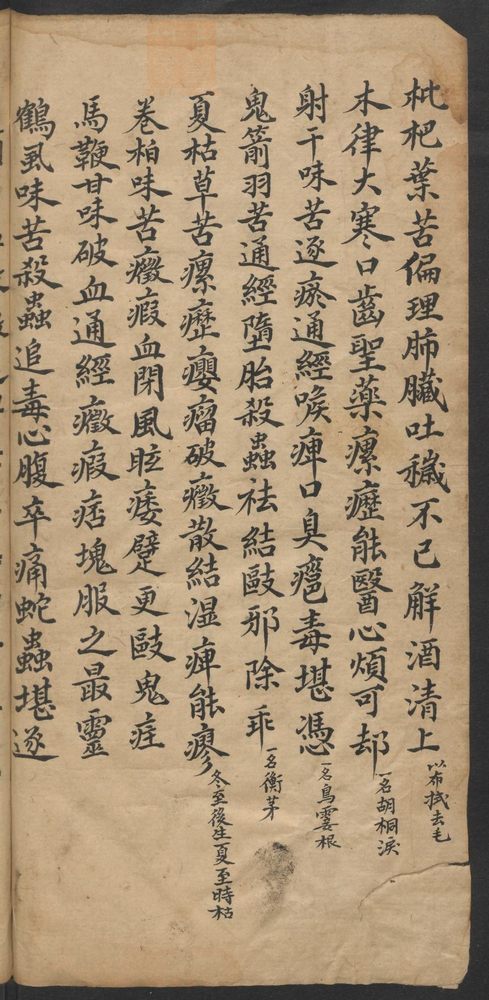 枇杷葉苦偏理肺臟吐穢不已解酒清上以布拭去毛
木律大寒口齒聖藥瘰癧能醫心煩可却一名胡桐淚
射干味苦逐瘀通經喉痺口臭癰毒堪憑一名烏霎根
鬼箭羽苦通經墮胎殺蟲祛結毆邪除乖一名衡茅
夏枯草苦瘰癧癭瘤破癥散結湿痺能瘳冬至後生夏至時枯
卷柏味苦癥瘕血閉風眩痿躄更毆鬼疰
馬鞭甘味破血通經癥瘕痞塊服之最靈
鶴虱味苦殺蟲追毒心腹卒痛蛇蟲堪逐